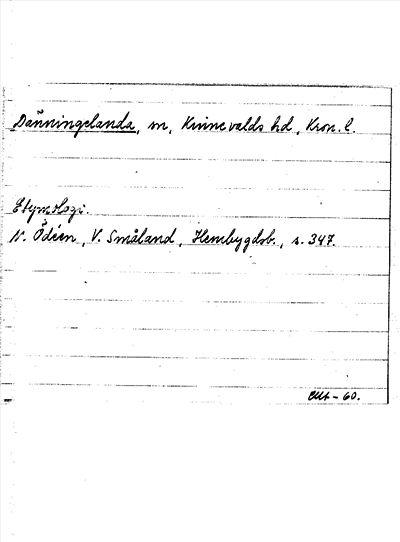 Dänningelanda, m, Kinnevalds hd, Kron. l.
Etymologi.
N. Ödéen, V. Småland, Hembygdsb., s. 347.
- 60.